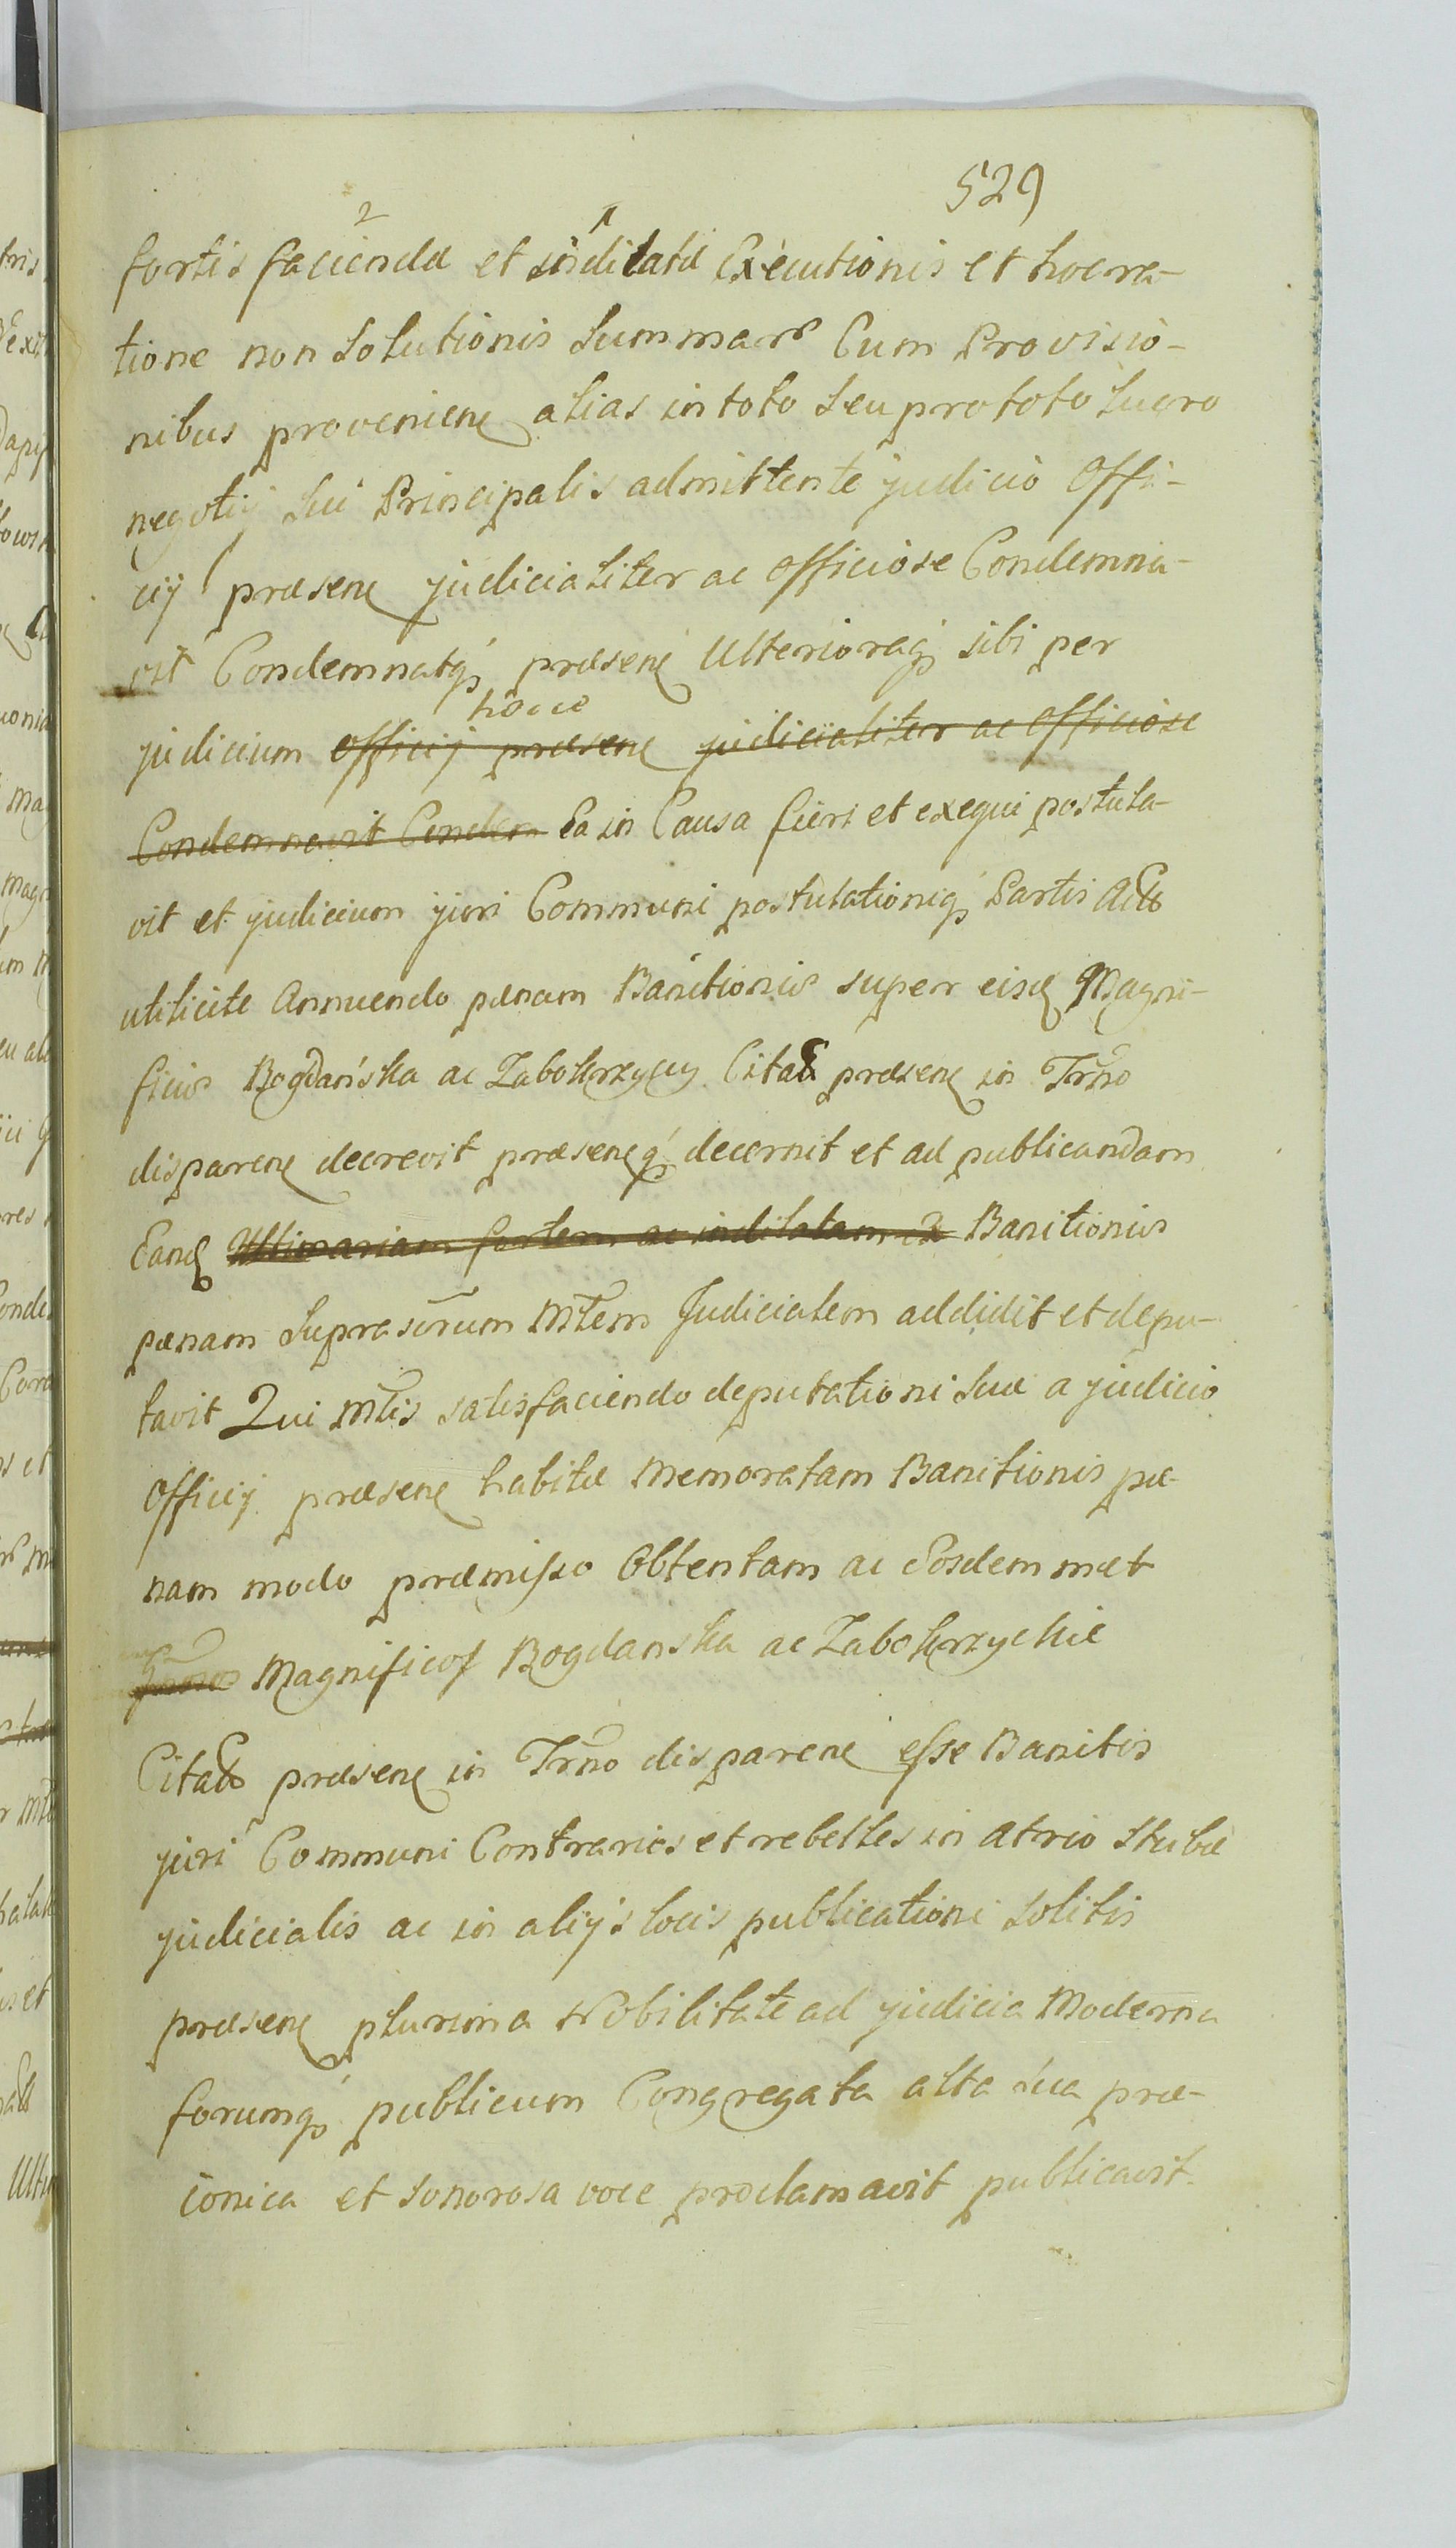 529
fortis faciendæ et indilatæ Executionis et hoc ra-
tione non Solutionis Summar Cum Provisio-
nibus provenien alias in toto Seu pro toto lucro
negotij Sui Principalis admittente judicio Offi-
cij præsen judicialiter ac Officiose Condemna-
vit Condemnatq præsen Ulterioraq sibi per
hocce
judicium Officij præsen judicialiter ac Officiose
Condemnavit Condem Ea in Causa fieri et exequi postula-
vit et judicium juri Communi postulationiq Partis Act
utilicite Annuendo pænam Banitionis super eisd Magni-
ficis Bogdańska ac Zabokrzycy Citat præsen in Trno
disparen decrevit præsenq decernit et ad publicandam
Eand Ultimariam fortem ac indilatam Ex Banitionis
pænam Suprascrum Mtem Judicialem addidit et depu-
tavit Qui Mtis satisfaciendo deputationi Suæ a judicio
Officij præsen habitæ Memoratam Banitionis pæ-
nam modo præmisso Obtentam ac Eosdem met
Magnificos Bogdanska ac Zabokrzyckie
Citatos præsen in Trno disparen esse Banitos
juri Communi Contrarios et rebelles in atrio Stubæ
judicialis ac in alijs locis publicationi Solitis
præsen plurima Nobilitate ad judicia Moderna
forumq publicum Congregata alta Sua præ-
conica et Sonorosa voce proclamavit publicavit